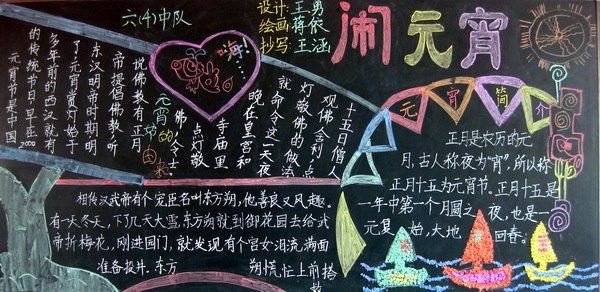 六(4)中队
设计:王勇
绘画:蒋侬
抄写:王涵
闹元宵
嗨!
元宵的由来
元宵节是中国
的传统节日,早在2000
多年前的西汉就有
了,元宵赏灯始于
东汉明帝时期,明
帝提倡佛教,听
说佛教有正月
十五日僧人
观佛舍利,点
灯敬佛的做法
就命令这一天夜
晚在皇宫和
寺庙里
点灯敬
佛,令士
元宵简介
正月是农历的元
月,古人称夜为“宵”,所以称
正月十五为元宵节。正月十五是
一年中第一个月圆之夜,也是一
元复始,大地回春。
相传汉武帝有个宠臣名叫东方朔,他善良又风趣。
有一天冬天,下了几天大雪,东方朔就到御花园去给武
帝折梅花,刚进园门,就发现有个宫女泪流满面
准备投井.东方朔慌忙上前搭
救